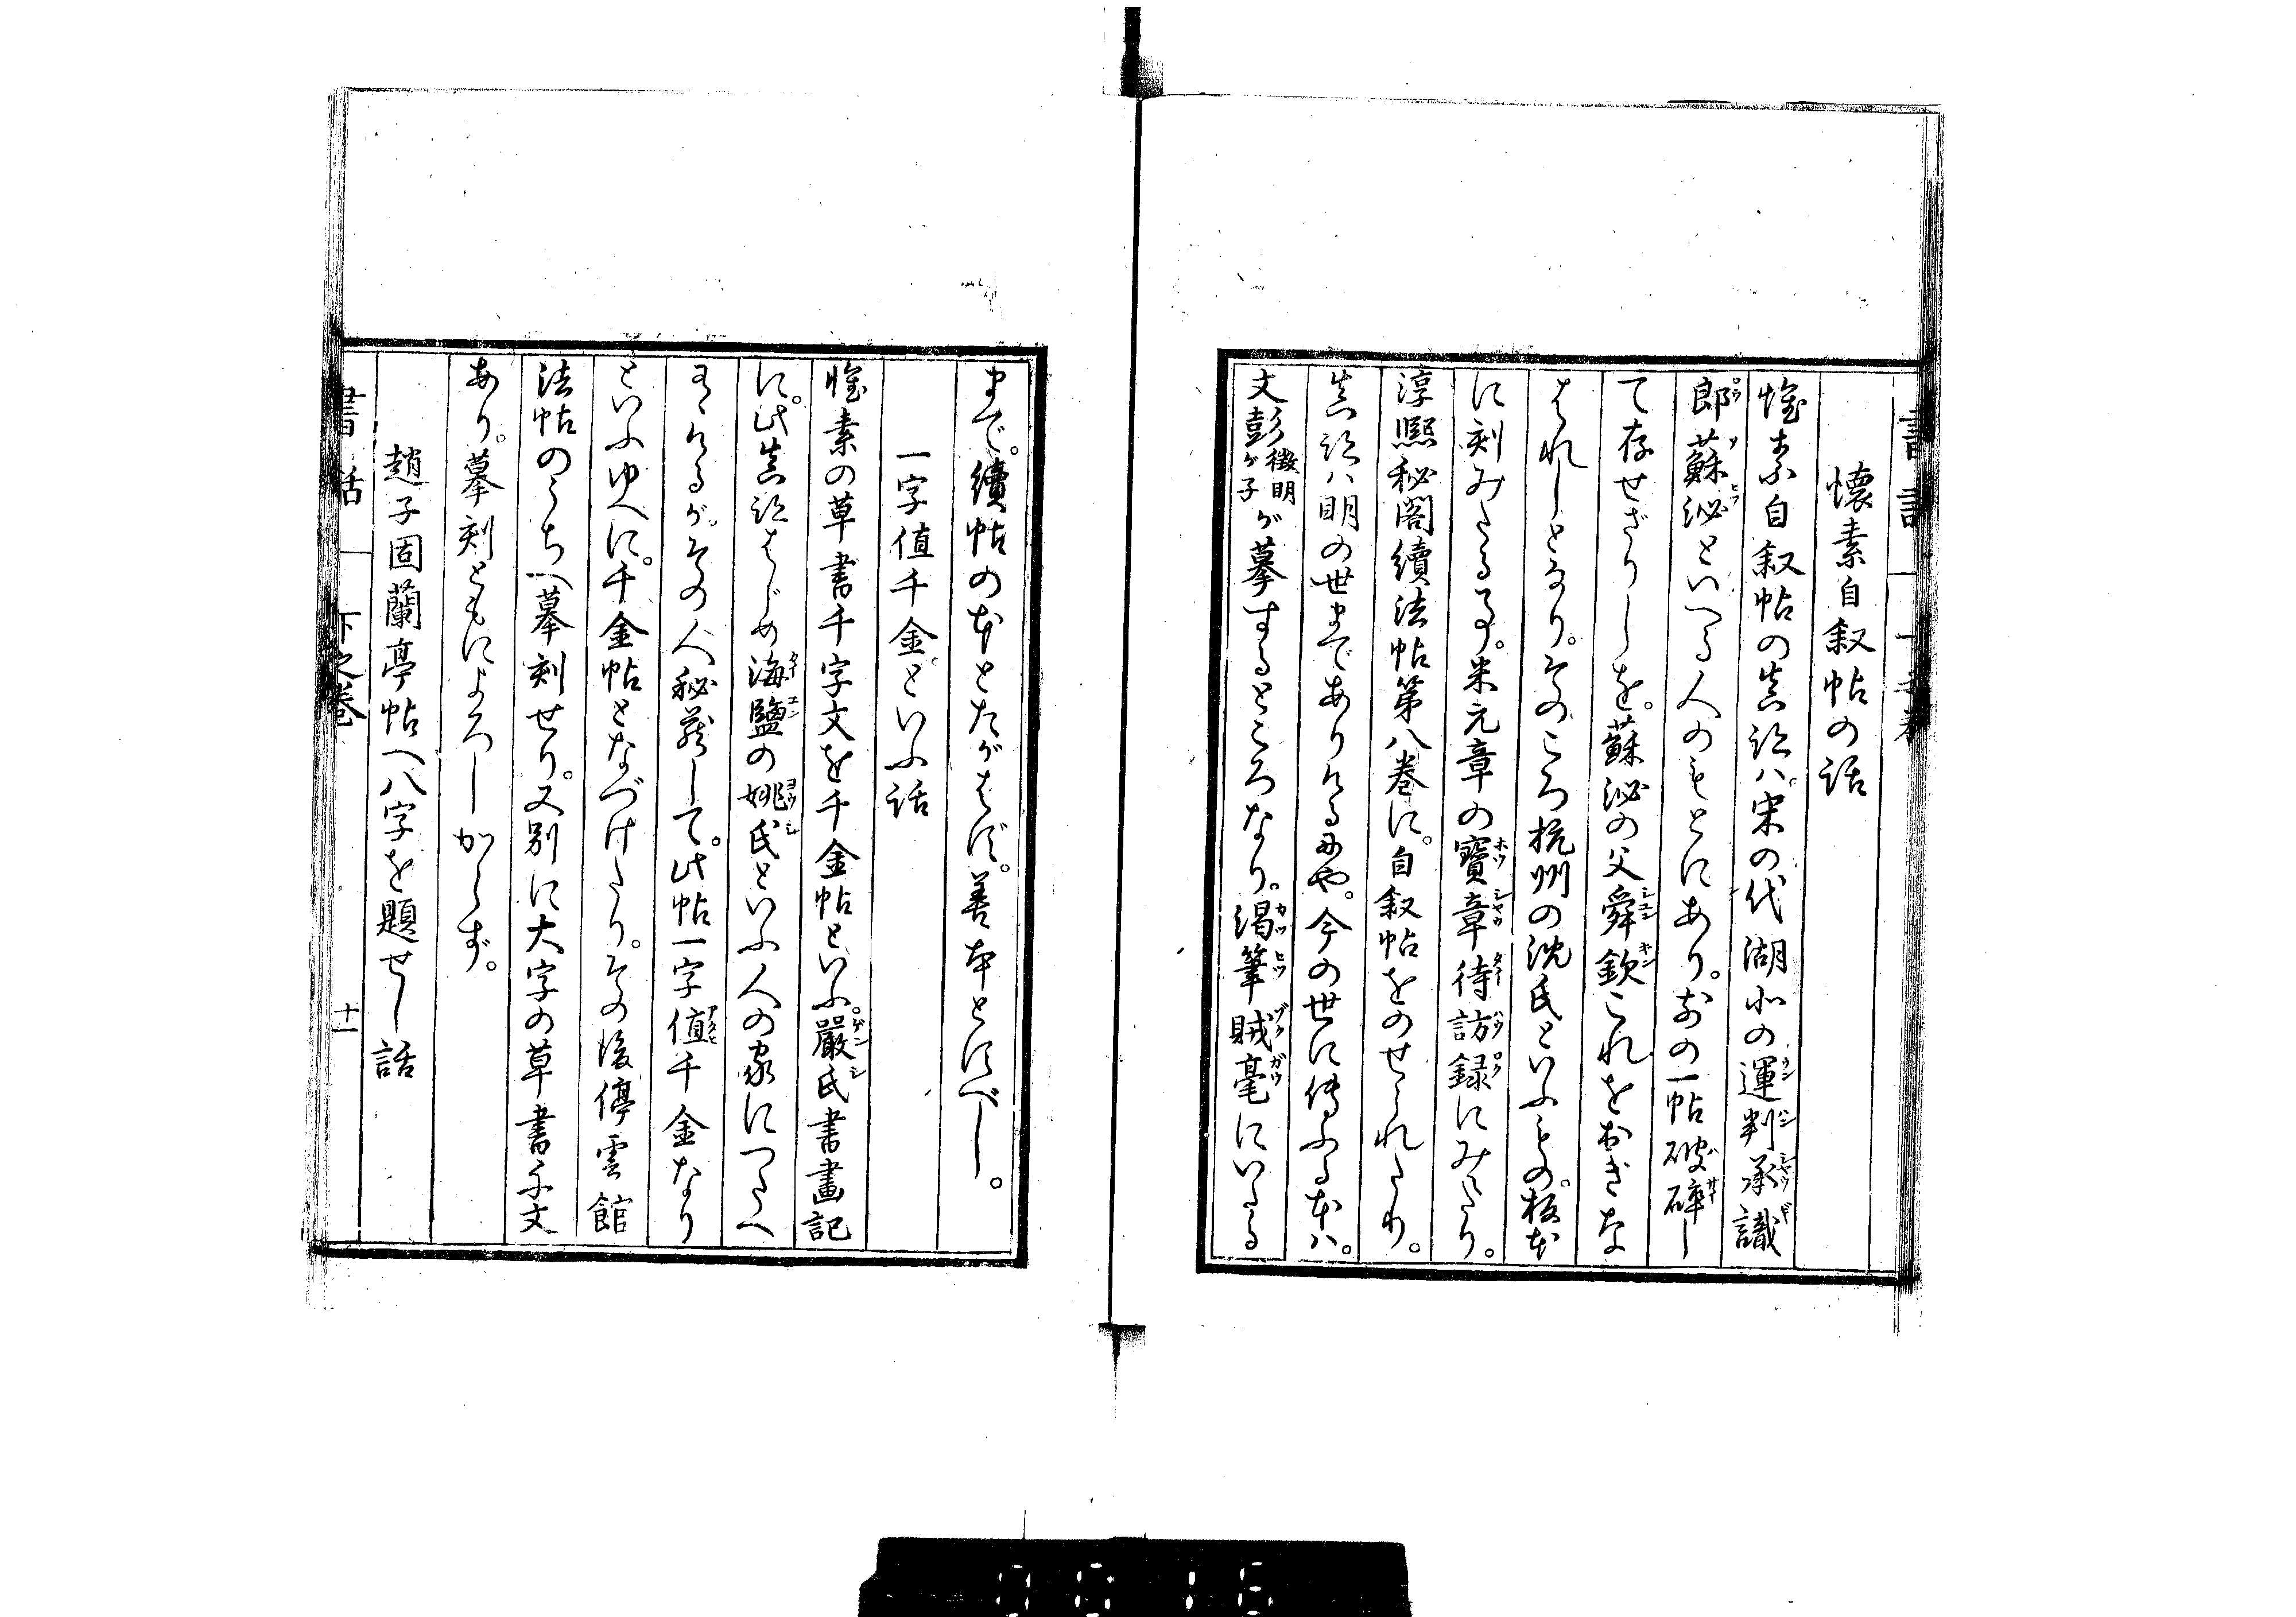 懐素自叙帖の話
懐素自叙帖の真跡ハ。宋の代湖北の運判承議
郎蘇泌といへる人のもとにあり。前の一帖破砕し
て存せざりしを。蘇泌の父舜欽これをおぎな
はれしとなり。そのころ杭州の沈氏といふもの。板本
に刻みたる事。米元章の寶章待訪録にみえたり。
淳熙秘閣續法帖第八巻に。自叙帖をのせられたり。
真跡ハ明の世まであリけるにや。今の世に傳ふる本ハ。
文彭徴明ガ子が摹するところなり。渇筆賊毫にいたる
まで。續帖の本とたがはず。善本とすべし。
一字値千金。といふ話
懐素の草書千字文を千金帖といふ。嚴氏書畫記
に。此真跡はじめ海鹽の姚氏といふ人の家につたへ
有けるが。その人秘蔵して。此帖一字値千金なり
といふゆへに。千金帖となづけたり。その後停雲館
法帖のうちへ摹刻せり。又別に大字の草書千文
あり。摹刻ともによろしからず。
趙子固蘭亭帖へ八字を題せし話
書話 下之巻 十一